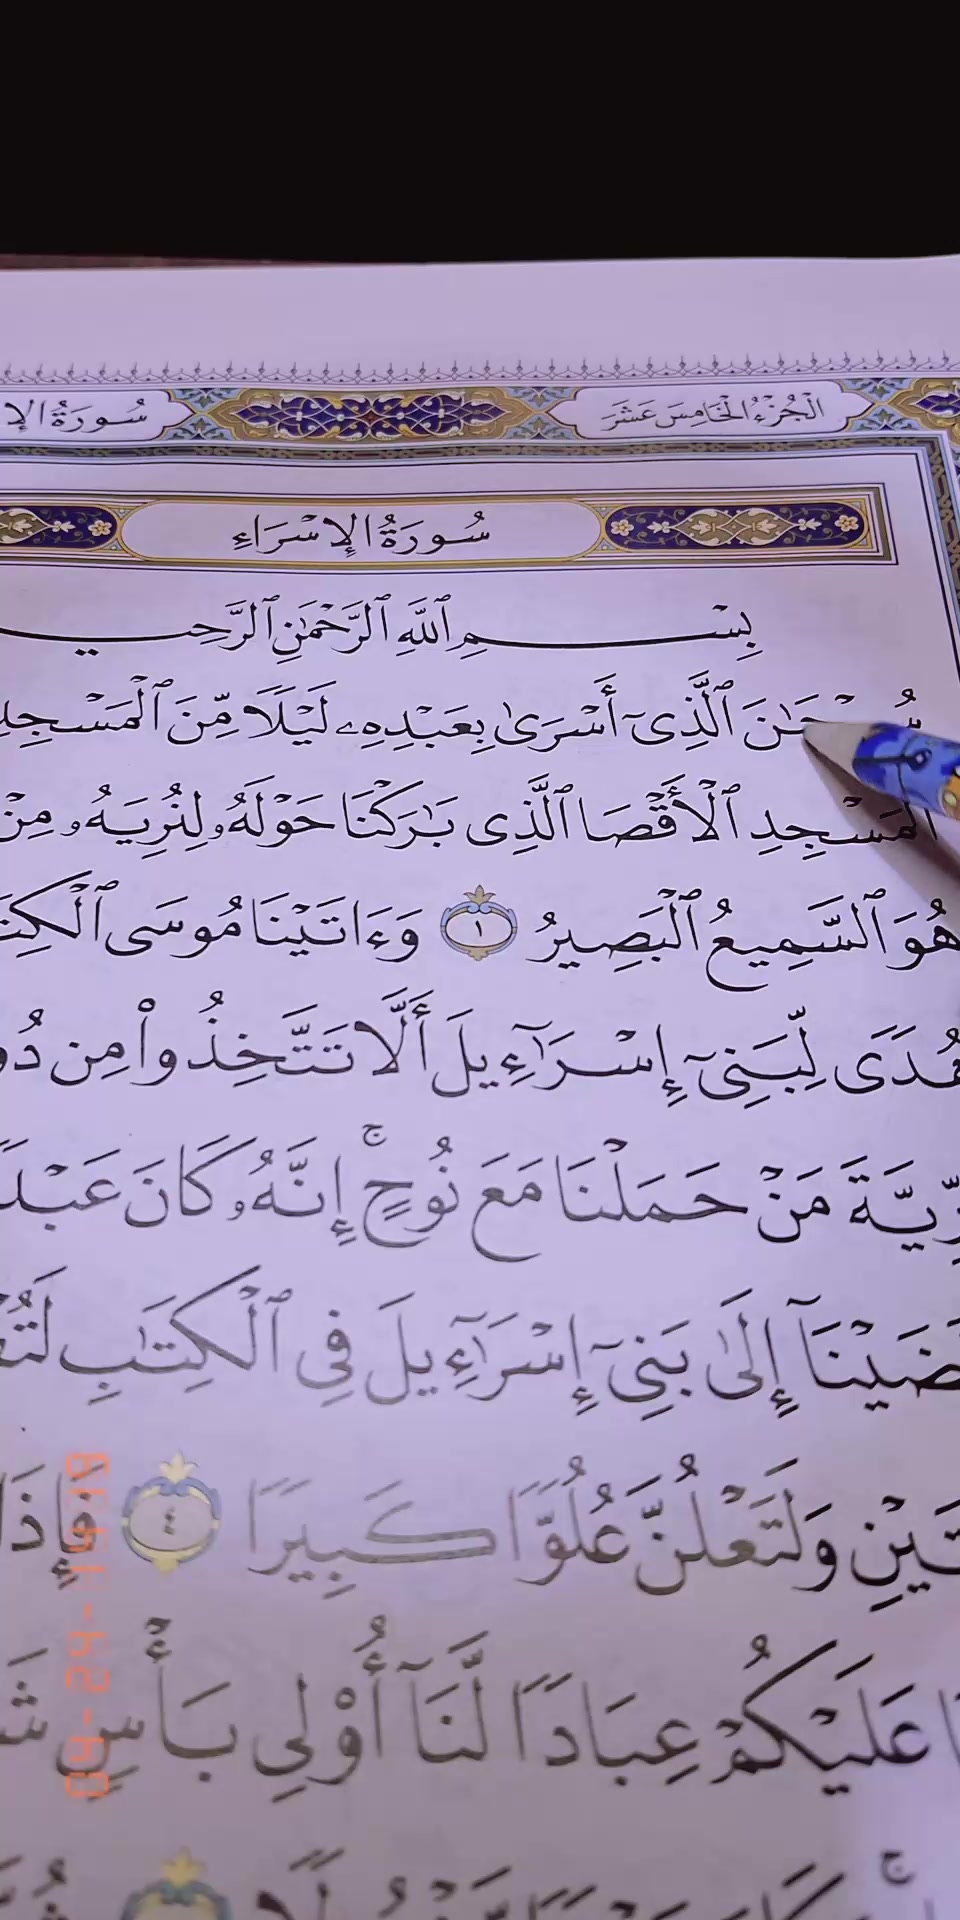 الجُزْءُ الخَامِسَ عَشَرَ سُورَةُ الإ
سُورَةُ الإِسْرَاءِ
بِسْمِ ٱللَّهِ ٱلرَّحْمَٰنِ ٱلرَّحِي
حَٰنَ ٱلَّذِىٓ أَسْرَىٰ بِعَبْدِهِۦ لَيْلًا مِّنَ ٱلْمَسْجِدِ
ٱلْمَسْجِدِ ٱلْأَقْصَا ٱلَّذِى بَٰرَكْنَا حَوْلَهُۥ لِنُرِيَهُۥ مِنْ
هُوَ ٱلسَّمِيعُ ٱلْبَصِيرُ ١ وَءَاتَيْنَا مُوسَى ٱلْكِتَ
هُدًى لِّبَنِىٓ إِسْرَٰٓءِيلَ أَلَّا تَتَّخِذُوا۟ مِن دُو
رِّيَّةَ مَنْ حَمَلْنَا مَعَ نُوحٍ ۚ إِنَّهُۥ كَانَ عَبْدً
ضَيْنَآ إِلَىٰ بَنِىٓ إِسْرَٰٓءِيلَ فِى ٱلْكِتَٰبِ لَتُفْ
تَيْنِ وَلَتَعْلُنَّ عُلُوًّا كَبِيرًا ٤ فَإِذَا
ا عَلَيْكُمْ عِبَادًا لَّنَآ أُو۟لِى بَأْسٍ شَ